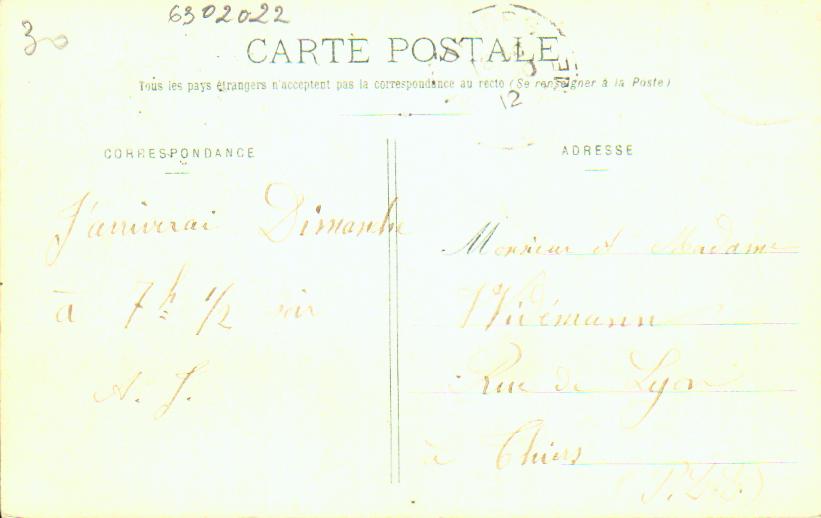 30
6302022
CARTE POSTALE
Tous les pays étrangers n'acceptent pas la correspondance au recto (Se renseigner à la Poste)
12
CORRESPONDANCE
J'arriverai Dimanche
à 7h 1/2 soir
A. J.
ADRESSE
Monsieur et Madame
Widémann
Rue de Lyon
à Thiers
(P.D.D.)